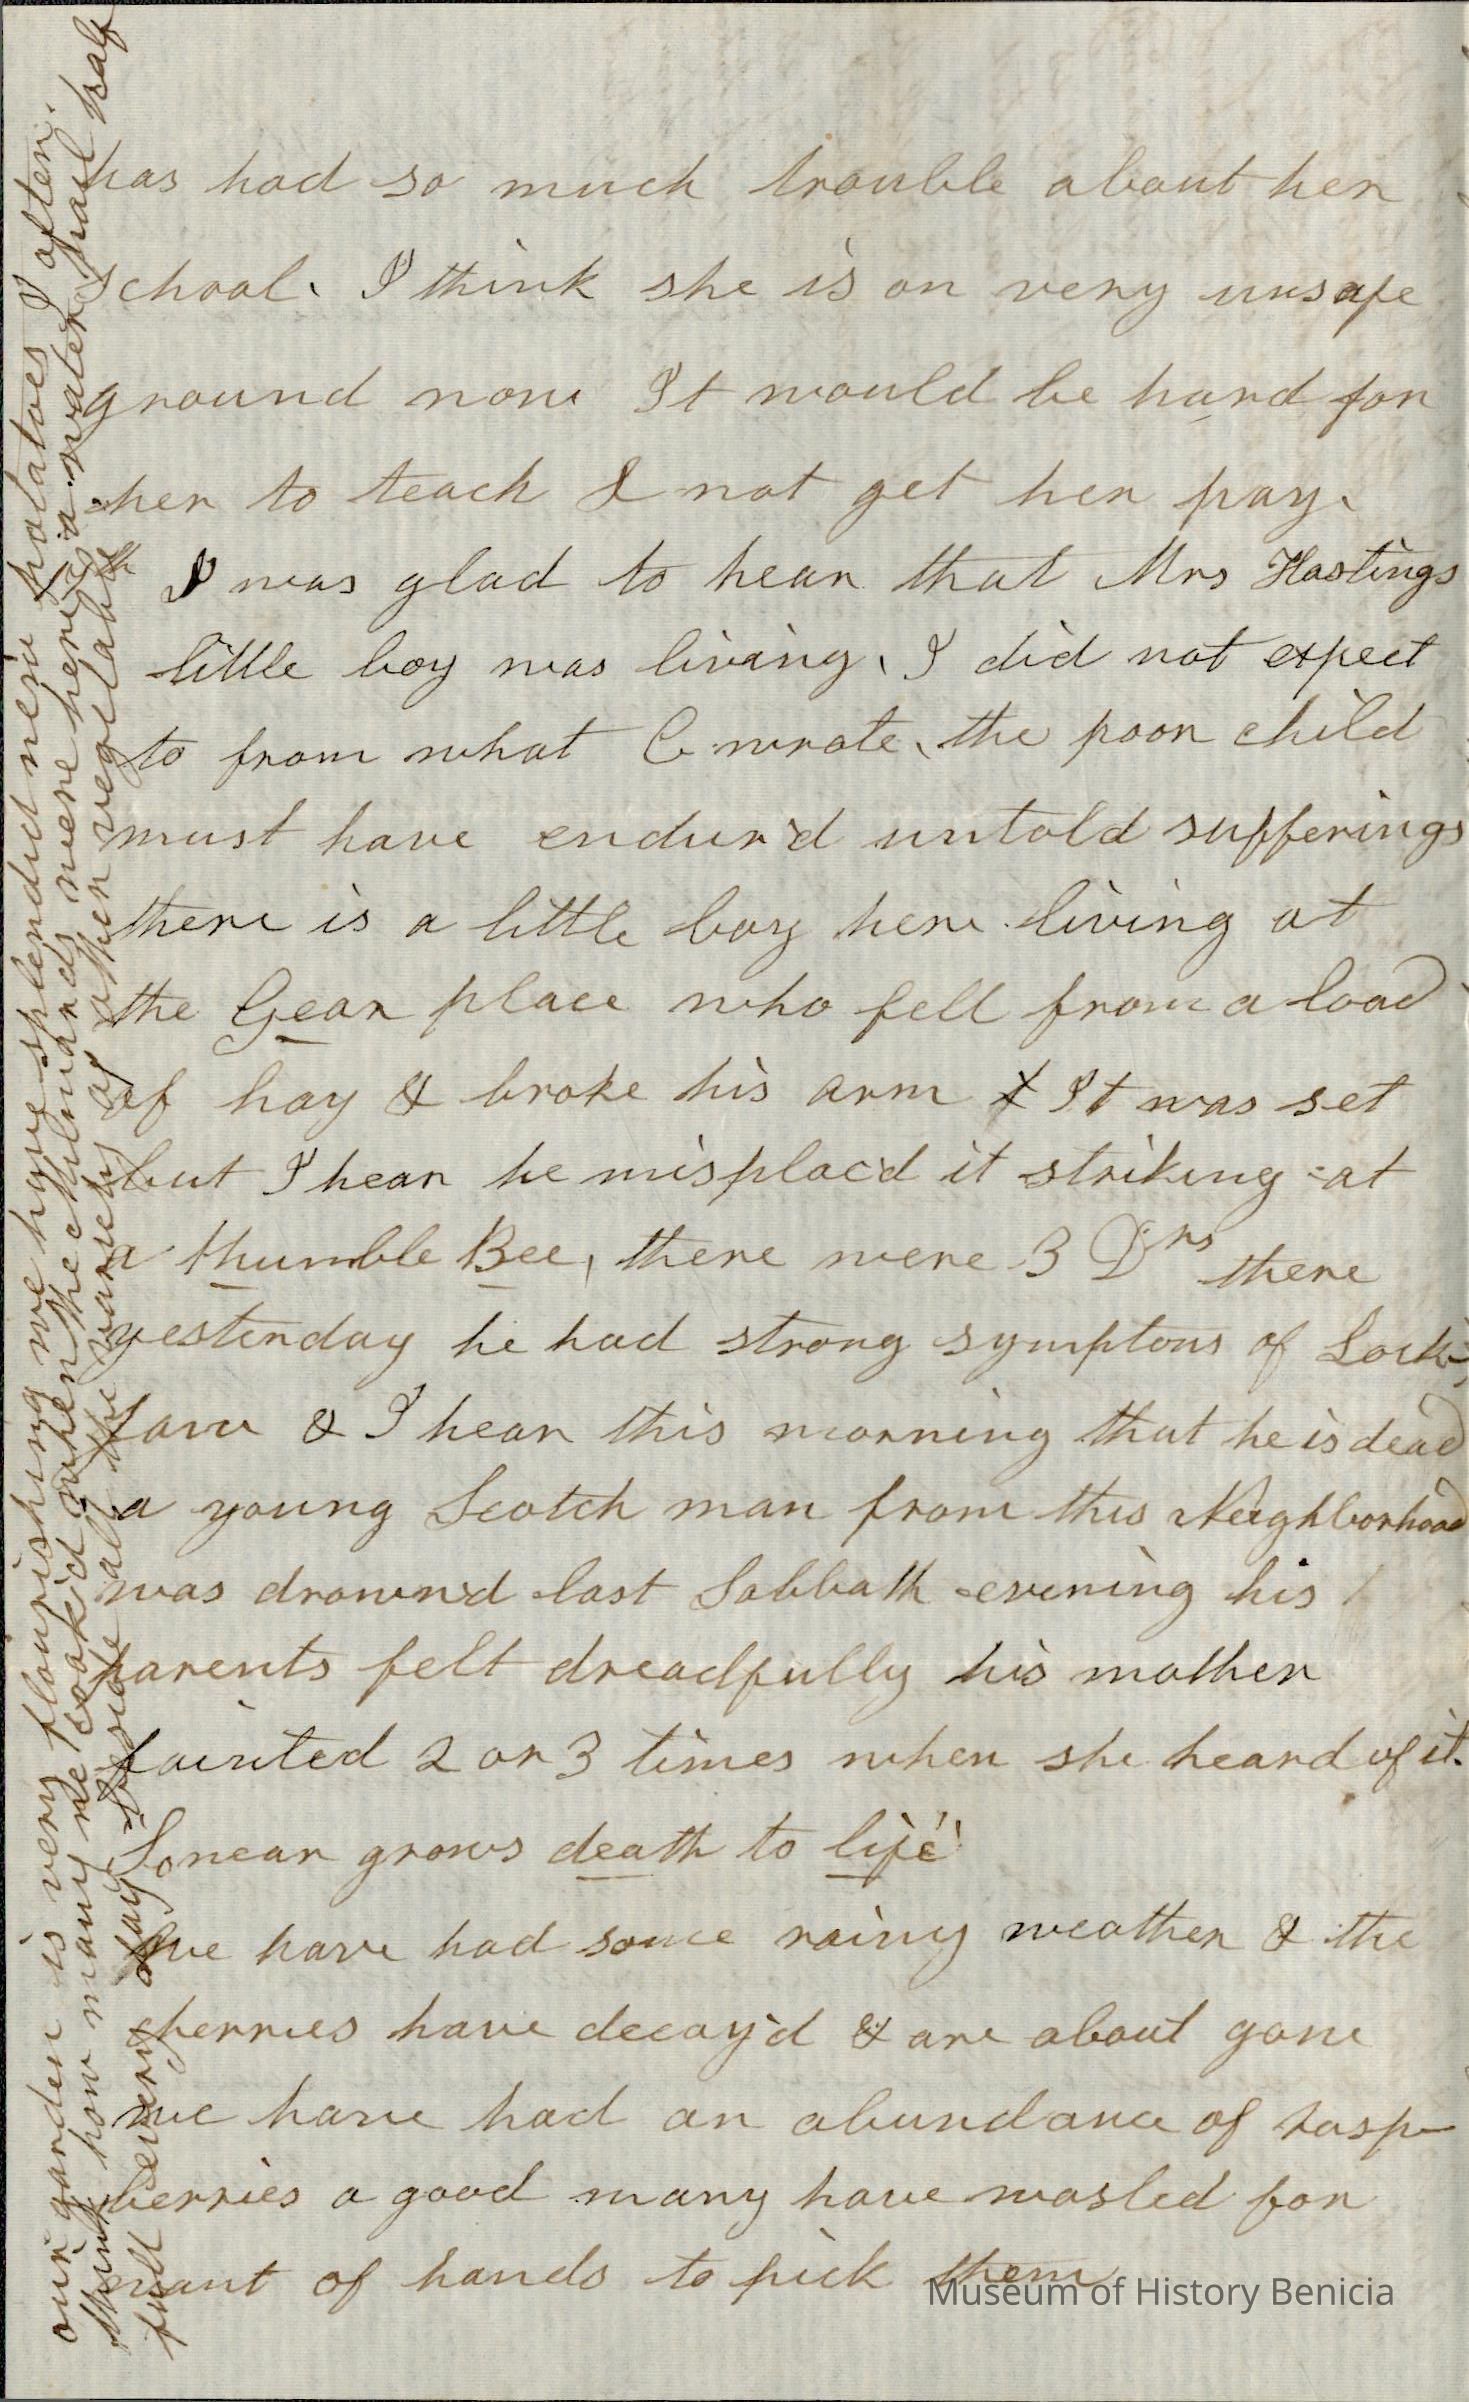 has had so much trouble about her
school. I think she is on very unsafe
ground now It would be hard for
her to teach & not get her pay.
I was glad to hear that Mrs Hastings
little boy was living, I did not expect
to from what C wrote, the poor child
must have endur'd untold sufferings
there is a little boy here living at
the Gear place who fell from a load
of hay & broke his arm & It was set
but I hear he misplac'd it striking at
a thumble Bee, there were 3 Drs there
yesterday he had strong symptons of Lock
Jaw & I hear this morning that he is dead
a young Scotch man from this Neighborhood
was drown'd last Sabbath evening his
parents felt dreadfully his mother
fainted 2 or 3 times when she heard of it.
So near grows death to life"
we have had some rainy weather & the
cherries have decay'd & are about gone
we have had an abundance of rasp-
berries a good many have wasted for
want of hands to pick them
our garden is very flourishing we have splendid new potatoes I often
think how many we cook'd when the children were here a water pail half
full every day beside all the variety of other vegetables
Museum of History Benicia